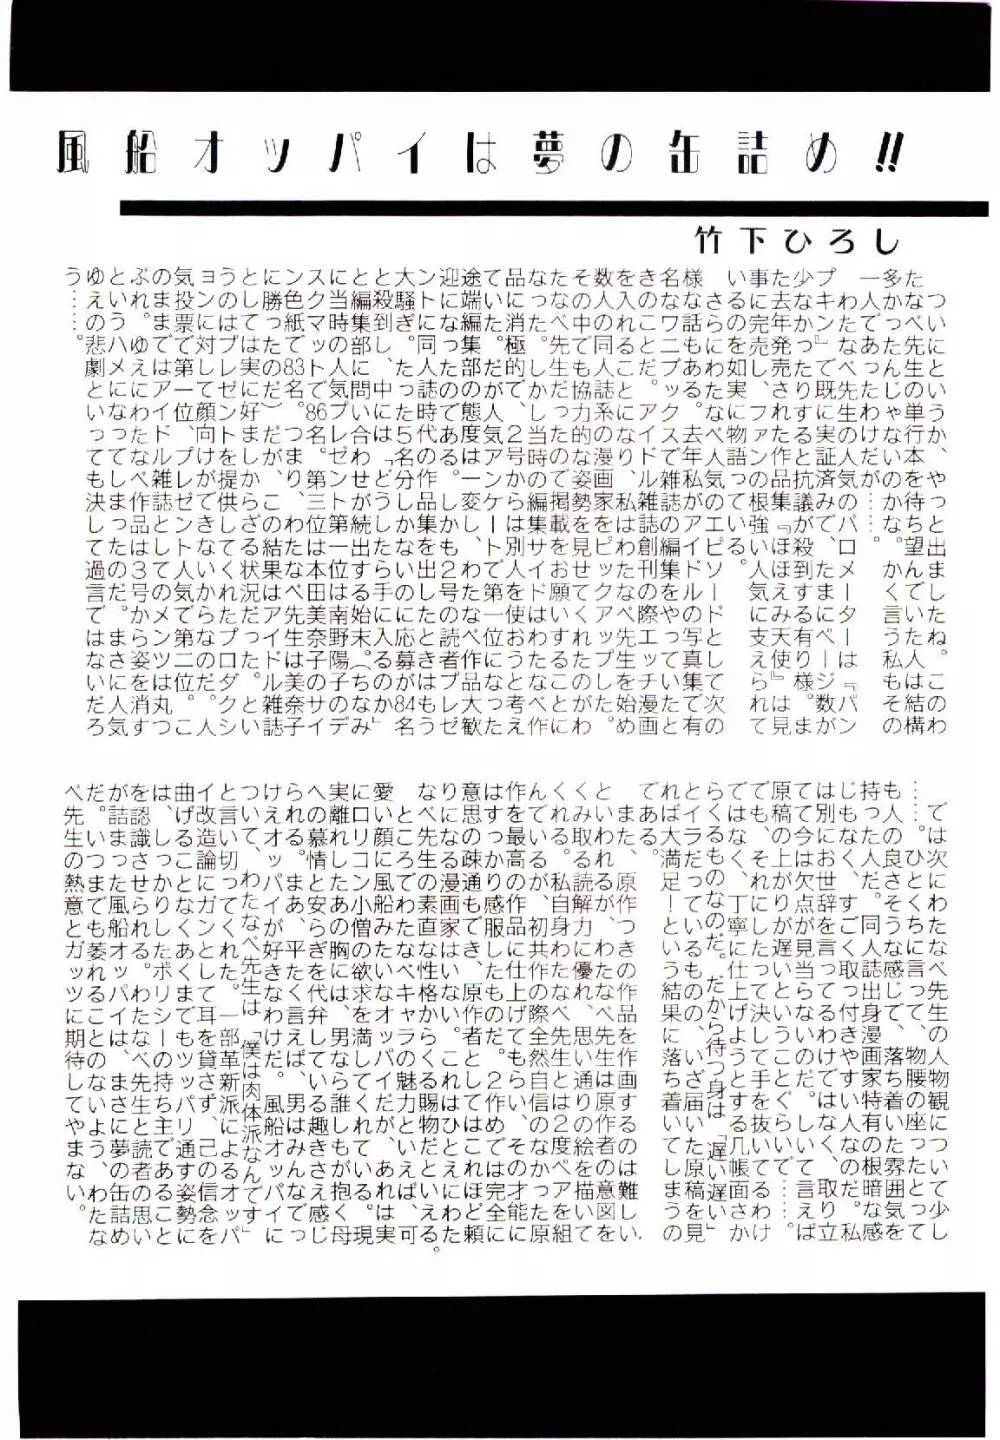 風船オッパイは夢の缶詰め!!
竹下ひろし
ついにというか、やっと出ましたね。このわ
たなべ先生の単行本を待ち望んでいた人は結構
多かったんじゃないのかな。かく言う私もその
一人であったわけだが……。
わたなべ先生の人気のバロメーターは『パン
プキン』で既に実証済みで、たまにページ数が
少なかったりすると抗議が殺到する有り様。ま
た去年発売された作品集『ほほえみ天使』は見
事に完売し、ファンの根強い人気に支えられて
いるのを如実に物語っている。
さらにわたなべ人気のエピソードとして次の
様な話もある。去年私がアイドルの写真集で有
名なワニブックスで雑誌の編集をやっていたと
きのことだ。アイドル雑誌創刊の際エッチ漫画
を入れることになり、私はわたなべ先生を始め
数人の同人誌系の漫画家をピックアップした。
その中でも協力的な姿勢を見せてくれたのがわ
たなべ先生だったので掲載をお願いすることに
なった。しかし当時の編集サイドはわたなべ作
品に消極的で、2号からは別人を使おうと考え
ていた。だが人気アンケートで第一位になった
途端編集部の態度は一変し、わたなべ作品大歓
迎になったのである。しかも2号の読者プレゼ
ントに同人誌時代の作品集を出したときはもう
大騒ぎ。たった5名分しかないのに応募が84名
と殺到し、中には「どうしたら手に入るのか」
と編集部に問い合わせが続出する始末。(ちなみ
に当時の人気プレゼント第一位は南野陽子のデ
スクマットで86名。第三位は本田美奈子のサイ
ン色紙で83名。つまり、わたなべ先生は美奈子
に勝ったのだ)だが、この結果はアイドル雑誌
としては実に好ましからざる状況だった。とい
うのはプレゼントを提供してくれたプロダクシ
ョンに対して顔向けができないからなのだ。人
気投票で第一位、プレゼント人気で第二位。こ
のままではアイドル雑誌としてのメンツは丸つ
ぶれ。ゆえにわたなべ作品は3号から姿を消す
というハメになってしまったのだ。まさに人気
ゆえの悲劇といっても決して過言ではないだろ
う……。
では次にわたなべ先生の人物観について少し
……。ひとくちに言って、物腰の座ったとって
も人の良さそうな感じで、落ち着いた雰囲気を
持った人だ。同人誌出身漫画家特有の根暗な感
じもなく、すごく取っ付きやすい人なのだ。私
は別にお世辞を言ってるわけではなく、取り立
てて今は欠点が見当らないのだ。しいて言えば
原稿の上がりが遅いということぐらいで……。
でも、それにしたって決して手を抜いてるわけ
ではなく、丁寧に仕上げようとする几帳面さか
らくるものなのだ。だから待つ身は「遅い遅い」
とイラだっていても、いざ届いた原稿を見
れば大満足ーという結果に落ち着いてしまうの
である。
また、原作つきの作品を作画するのは難しい
といわれるが、わたなべ先生は原作者の意図を
くみ取る読解力に優れ、思い通りの絵を描いて
くれる。私自身わたなべ先生とは2度ペアを組
んでいるが、初共作の際全然自信のなかった原
作を最高の作品に仕上げてもらい、その才能に
はすっかり感服したものだ。2作めでは完全に
意思の疎通もでき、原作者としてはこれほど頼
りになる漫画家はいない。これはひとえにわた
なべ先生の素直な性格からくる賜物だといえる。
ところでわたなべキャラの魅力といえば、可
愛い顔に風船みたいなオッパイだが、あれは実
にロリコン小僧の欲求を満してくれている。現
実離れしたあの胸には、男なら誰しもが抱く母
への慕情と安らぎを代弁している趣きさえ感じ
られる。まあ、平たく言えば、男はみんなでっ
けえオッパイが好きなわけだ。風船オッパイに
ついて、わたなべ先生は、「僕は肉体派なんです」
と言い切ってくれた。一部革新派によるオッパ
イ改造論にガンとして耳を貸さず、己の信念を
曲げることなくあくまでもツッパリ通す姿勢に
は、しっかりしたポリシーの持ち主であること
を認識させられる。わたなべ先生と読者の思い
が詰まった風船オッパイは、まさに夢の缶詰め
だ。いつまでも萎れることのないよう、わたな
べ先生の熱意とガッツに期待してやまない。